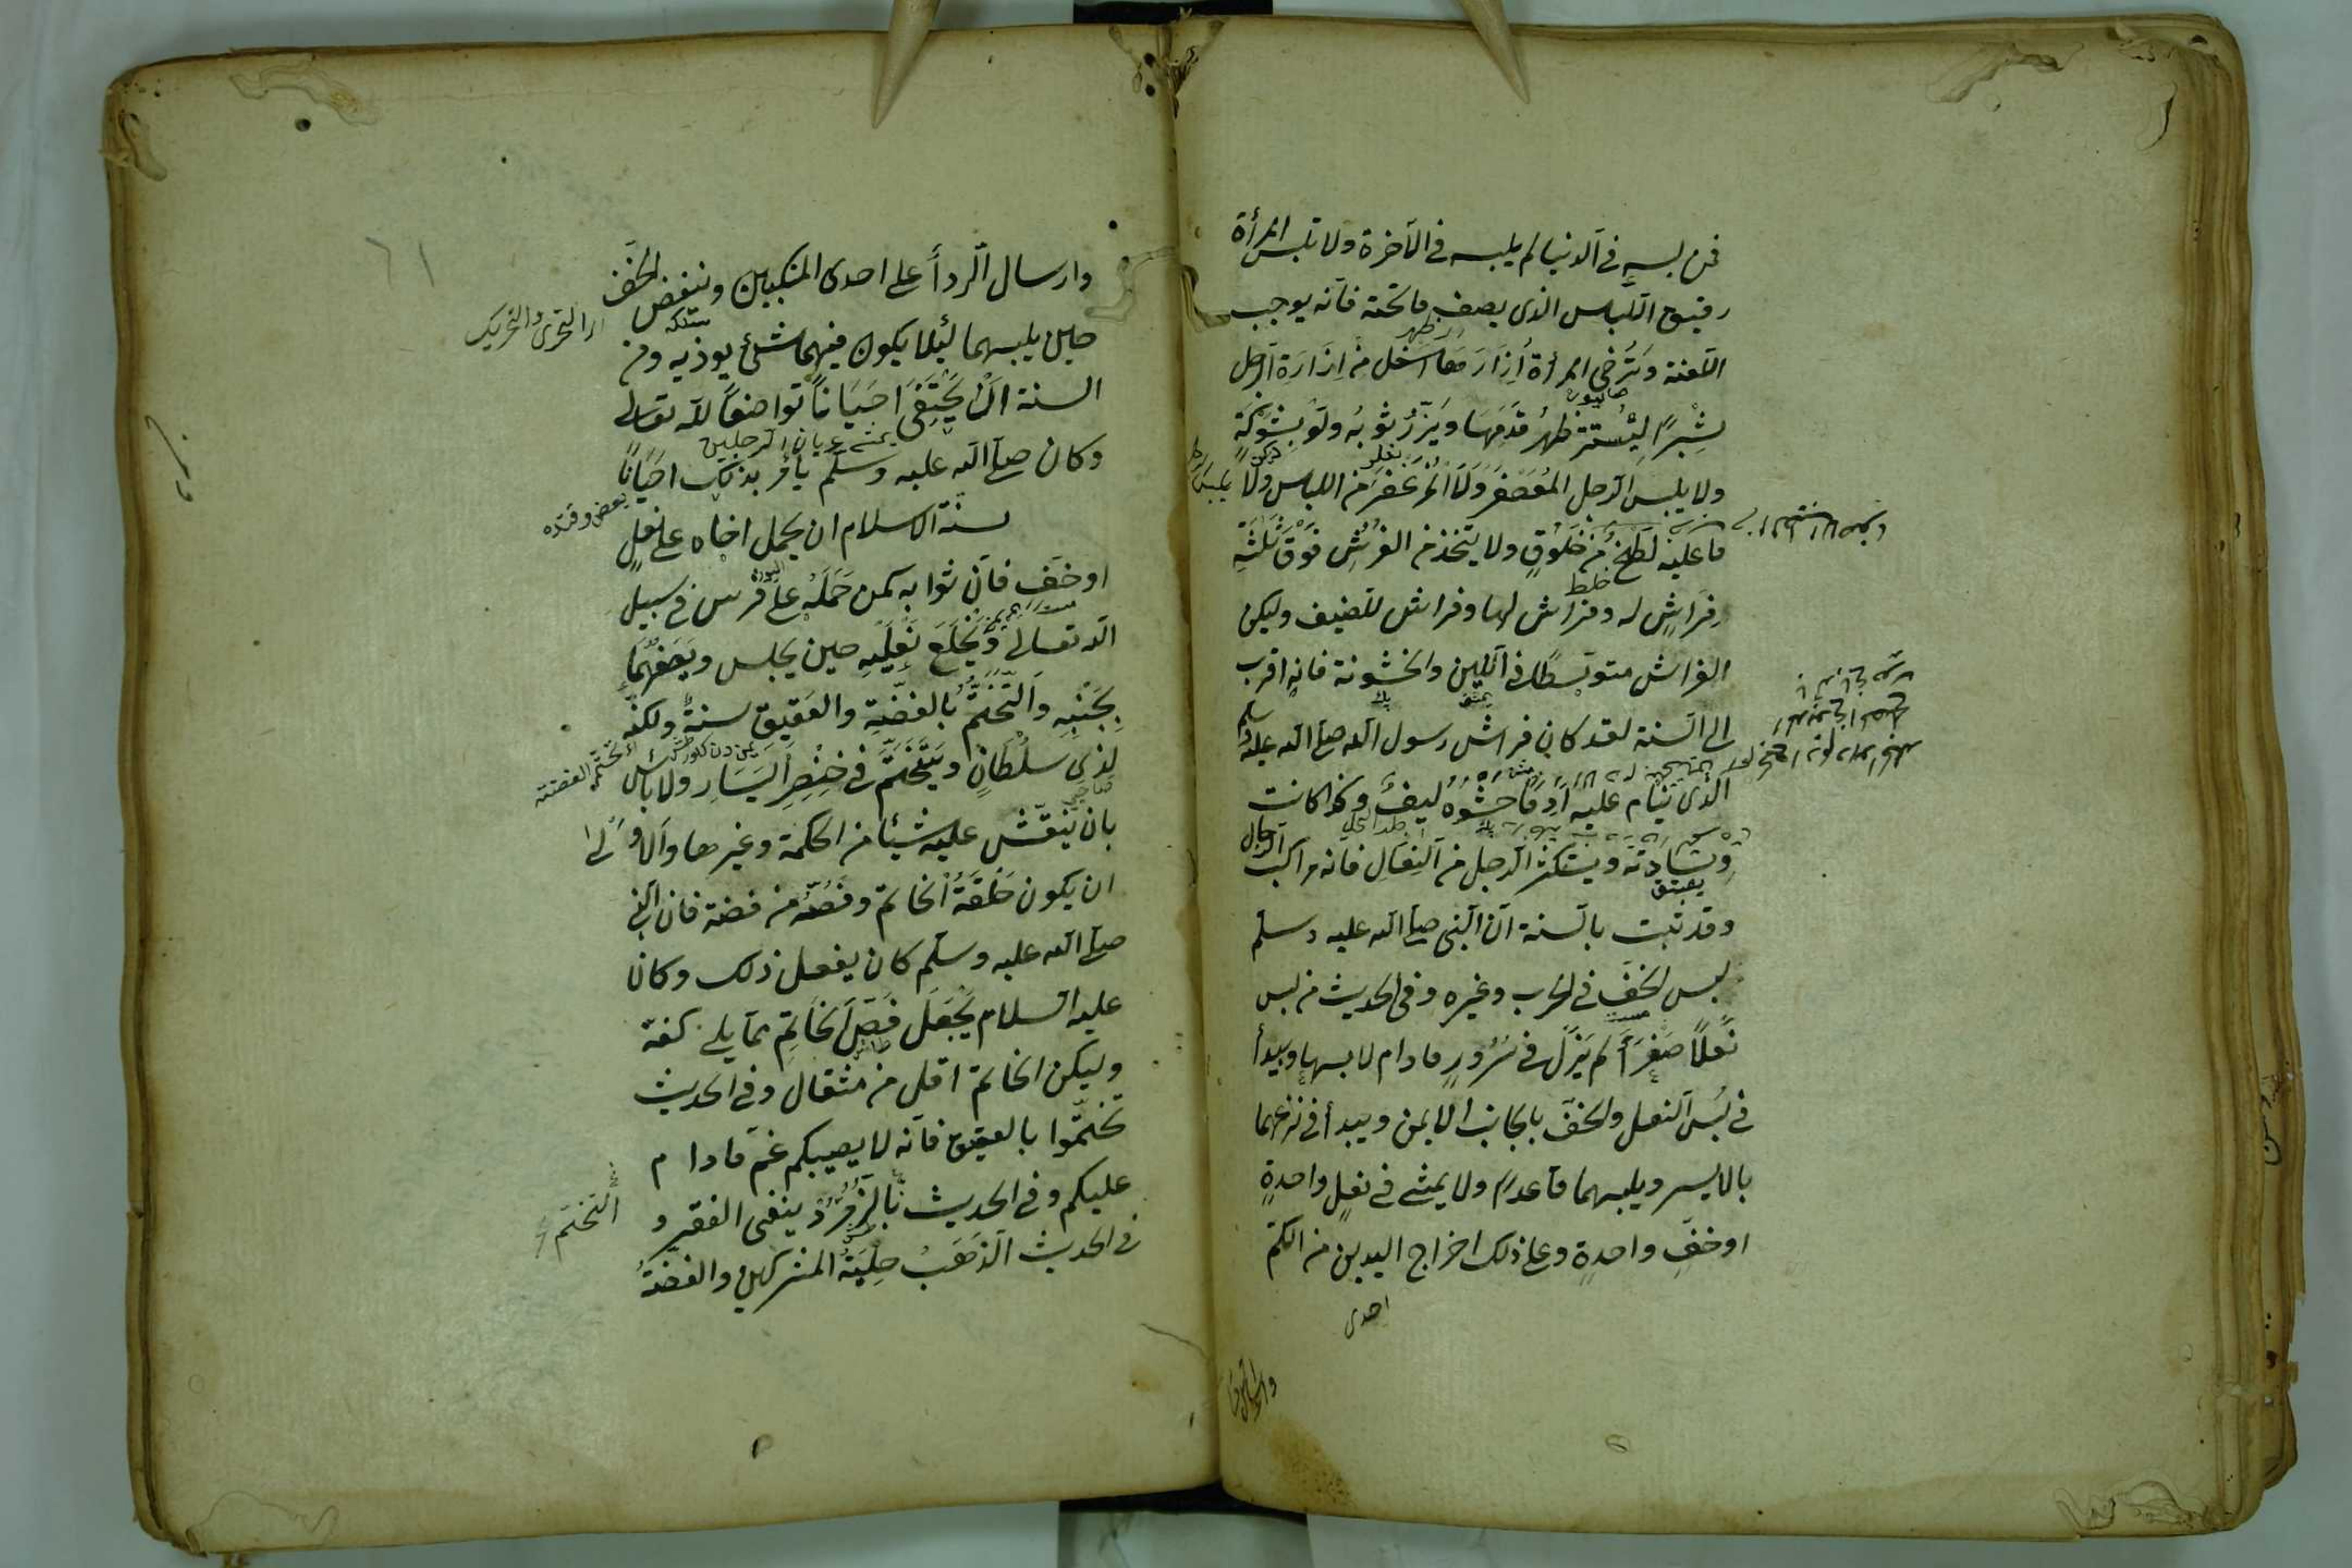 فمن لبسه في الدنيا لم يلبسه في الآخرة ولا تلبس المرأة
رقيق اللباس الذي يصف ما تحته فانه يوجب
اللعنة وترخى المرأة إزارها اسفل من ازارة الرجل
بشبر ليستتر ظهر قدمها ويزرّ ثوبه ولو بشوكة
ولا يلبس الرجل المعصفر ولا المزعفر من اللباس ولا يلبس
ما عليه لطخ من خلوق ولا يتخذ من الفرش فوق ثلثة
خلط
فراش له وفراش لها وفراش للضيف وليكن
الفراش متوسطا في اللين والخشونة فانه اقرب
الى السنة لقد كان فراش رسول الله صلى الله عليه وسلم
الذي ينام عليه أدما حشوه ليف وكذا كانت
وسادته ويستكثر الرجل من النعال فانه مراكب الرجال
وقد ثبت بالسنة ان النبي صلى الله عليه وسلم
لبس الخف في الحرب وغيره وفي الحديث من لبس
نعلاً صفرأ لم يزل في سرور مادام لابسها ويبدأ
في لبس النعل والخف بالجانب الايمن ويبدأ في نزعهما
بالايسر ويلبسهما قاعدا ولا يمشي في نعل واحدة
او خف واحدة وعلى ذلك اخراج اليدين من الكم
احدى
٦١
وارسال الردأ على احدى المنكبين وينفض الخف
حين يلبسهما لئلا يكون فيهما شئ يوذيه ومن
السنة ان يحتفي احيانا تواضعا لله تعالى
يمشي عريان الرجلين
وكان صلى الله عليه وسلم يأمر بذلك احيانا
سنة الاسلام ان يحمل اخاه على نعل
او خف فان ثوابه كمن حمله على فرس في سبيل
الله تعالى ويخلع نعليه حين يجلس ويضعهما
بجنبه والتختم بالفضة والعقيق سنة ولكنه
لذي سلطان ويتختم في خنصر اليسار ولا بأس
التختم الفضة
بان ينقش عليه شيئا من الحكمة وغيرها والاولى
ان يكون حلقة الخاتم وفصه من فضة فان النبي
صلى الله عليه وسلم كان يفعل ذلك وكان
عليه السلام يجعل فص الخاتم مما يلي كفه
وليكن الخاتم اقل من مثقال وفي الحديث
تختموا بالعقيق فانه لا يصيبكم غم مادام
عليكم وفي الحديث بالزمرد ينفي الفقر و
التختم
في الحديث الذهب حلية المشركين والفضة